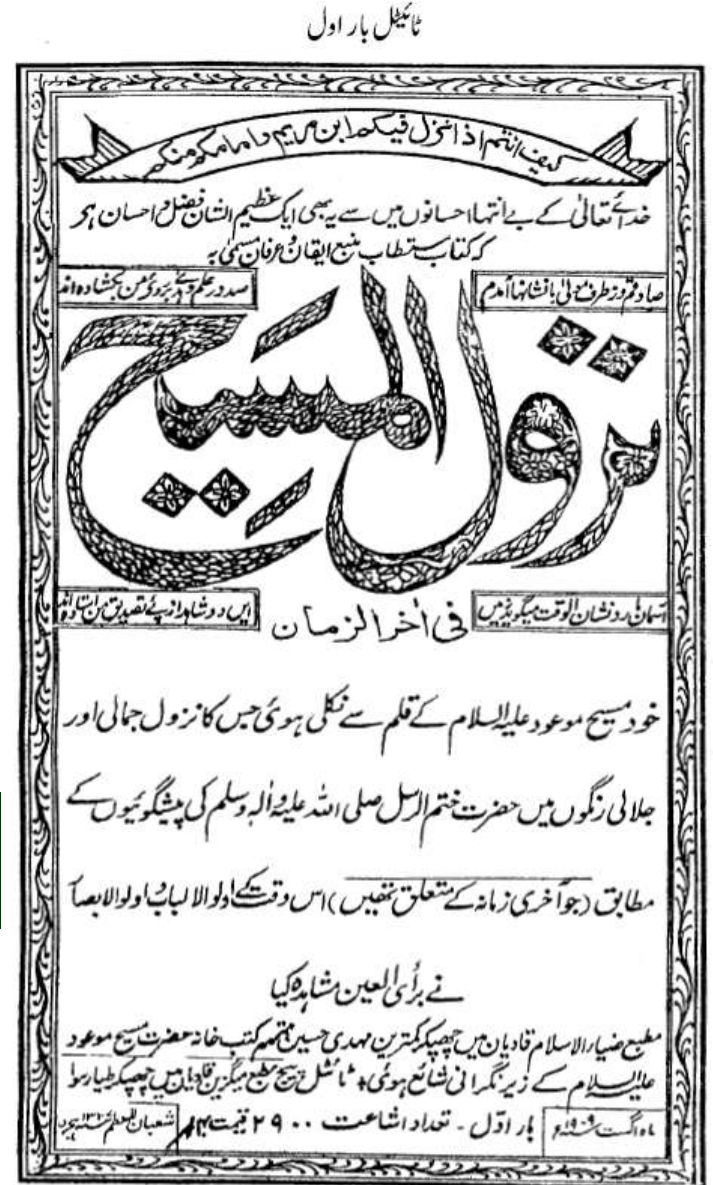 ٹائیٹل بار اول
کیف انتم اذا نزل فیکم ابن مریم و امامکم منکم
خدائے تعالیٰ کے بے انتہا احسانوں میں سے یہ بھی ایک عظیم الشان فضل و احسان ہے
کہ کتاب مستطاب منبع ایقان و عرفان مسمیٰ بہ
صادقم و ز طرف مولیٰ با نشانہا آمدم
صد در علم و ہدیٰ بر روئے من بکشادہ اند
نزول المسیح
آسمان بارد نشان الوقت میگوید زمیں
ایں دو شاہد از پئے تصدیق من استادہ اند
فی اٰخر الزمان
خود مسیح موعود علیہ السلام کے قلم سے نکلی ہوئی جس کا نزول جمالی اور
جلالی رنگوں میں حضرت ختم الرسل صلی اللہ علیہ واٰلہ وسلم کی پیشگوئیوں کے
مطابق (جو آخری زمانہ کے متعلق تھیں) اس وقت کے اولوالالباب و اولوالابصار
نے برأی العین مشاہدہ کیا
مطبع ضیاء الاسلام قادیان میں چھپکر کمترین مہدی حسین مہتمم کتب خانہ حضرت مسیح موعود
علیہ السلام کے زیر نگرانی شائع ہوئی + ٹائٹل پیج مطبع میگزین قادیان میں چھپکر طیار ہوا
ماہ اگست ۱۹۰۹ء
بار اوّل - تعداد اشاعت ۲۹۰۰ قیمت
شعبان المعظم